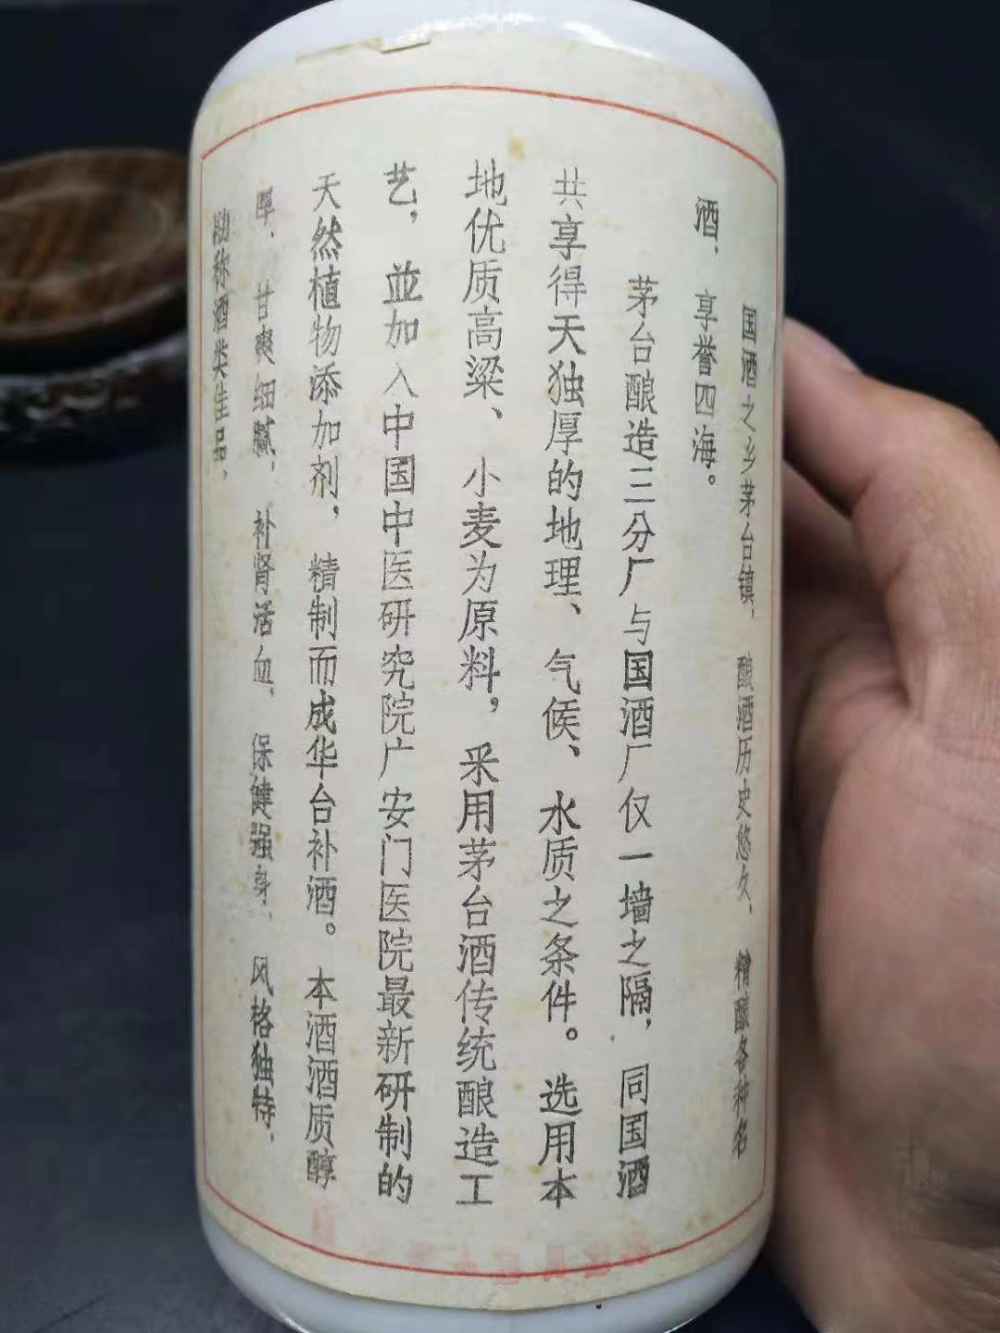 国酒之乡茅台镇，酿酒历史悠久，精酿各种名
酒，享誉四海。
茅台酿造三分厂与国酒厂仅一墙之隔，同国酒
共享得天独厚的地理、气候、水质之条件。选用本
地优质高粱、小麦为原料，采用茅台酒传统酿造工
艺，並加入中国中医研究院广安门医院最新研制的
天然植物添加剂，精制而成华台补酒。本酒酒质醇
厚、甘爽细腻，补肾活血，保健强身、风格独特，
勘称酒类佳品，